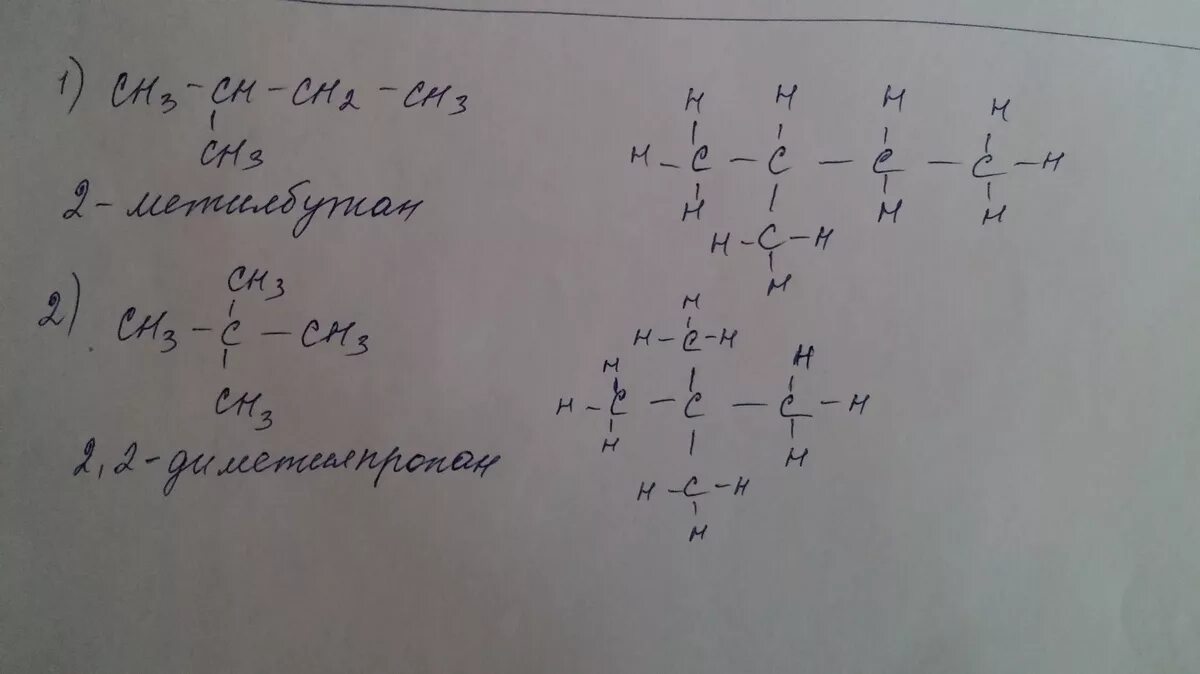 1) CH3 - CH - CH2 - CH3
CH3
2-метилбутан
H H H H
H - C - C - C - C - H
H H H
H - C - H
H
2) CH3
CH3 - C - CH3
CH3
2,2-диметилпропан
H
H - C - H
H H
H - C - C - C - H
H H
H - C - H
H